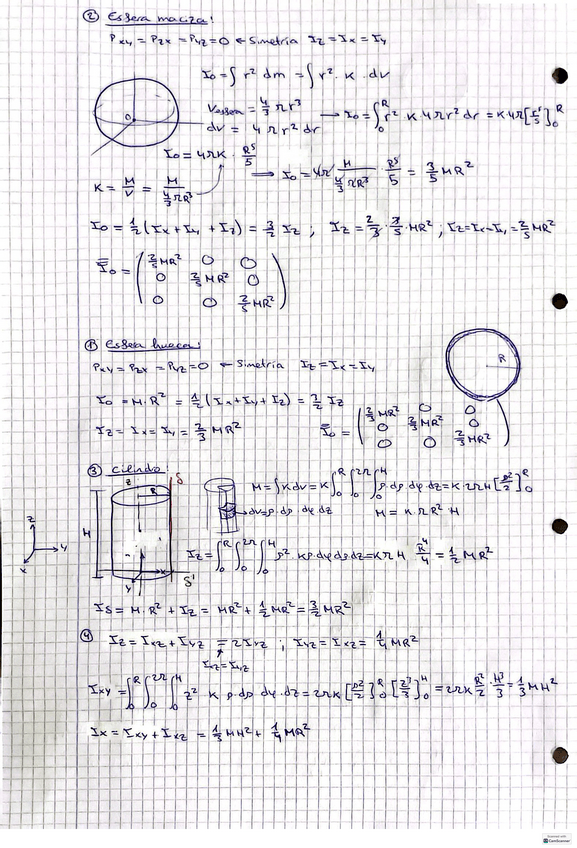 ② Esfera maciza:
Pxy = Pzx = Pyz = 0 ← Simetría Iz = Ix = Iy
I₀ = ∫ r² dm = ∫ r² · K · dV
Vesfera = 4/3 π r³ → I₀ = ∫₀ᴿ r² K 4πr² dr = K 4π [r⁵/5]₀ᴿ
dV = 4πr² dr
0
I₀ = 4πK · R⁵/5
K = M/V = M/(4/3 πR³) → I₀ = 4π M/(4/3 πR³) · R⁵/5 = 3/5 MR²
I₀ = 1/2 (Ix + Iy + Iz) = 3/2 Iz ; Iz = 2/3 · 3/5 · MR² ; Iz = Ix = Iy = 2/5 MR²
I₀ = ( 2/5 MR² 0 0
0 2/5 MR² 0
0 0 2/5 MR² )
① Esfera hueca:
Pxy = Pzx = Pyz = 0 ← Simetría Iz = Ix = Iy
R
I₀ = M · R² = 1/2 (Ix + Iy + Iz) = 3/2 Iz
Iz = Ix = Iy = 2/3 MR²
I₀ = ( 2/3 MR² 0 0
0 2/3 MR² 0
0 0 2/3 MR² )
③ Cilindro
z R S
M = ∫ K dV = K ∫₀ᴿ ∫₀²π ∫₀ᴴ ρ dρ dφ dz = K 2π H [ρ²/2]₀ᴿ
dV = ρ · dρ dφ dz
M = K π R² H
H
z y x
y x S'
Iz = ∫₀ᴿ ∫₀²π ∫₀ᴴ ρ² Kρ dρ dφ dz = K 2π H R⁴/4 = 1/2 MR²
Is = M · R² + Iz = MR² + 1/2 MR² = 3/2 MR²
④ Iz = Ixz + Iyz = 2 Iyz ; Iyz = Ixz = 1/4 MR²
Ixz = Iyz
Ixy = ∫₀ᴿ ∫₀²π ∫₀ᴴ z² K ρ dρ dφ dz = 2πK [ρ²/2]₀ᴿ [z³/3]₀ᴴ = 2πK R²/2 · H³/3 = 1/3 MH²
Ix = Ixy + Ixz = 1/3 MH² + 1/4 MR²
Scanned with
CamScanner